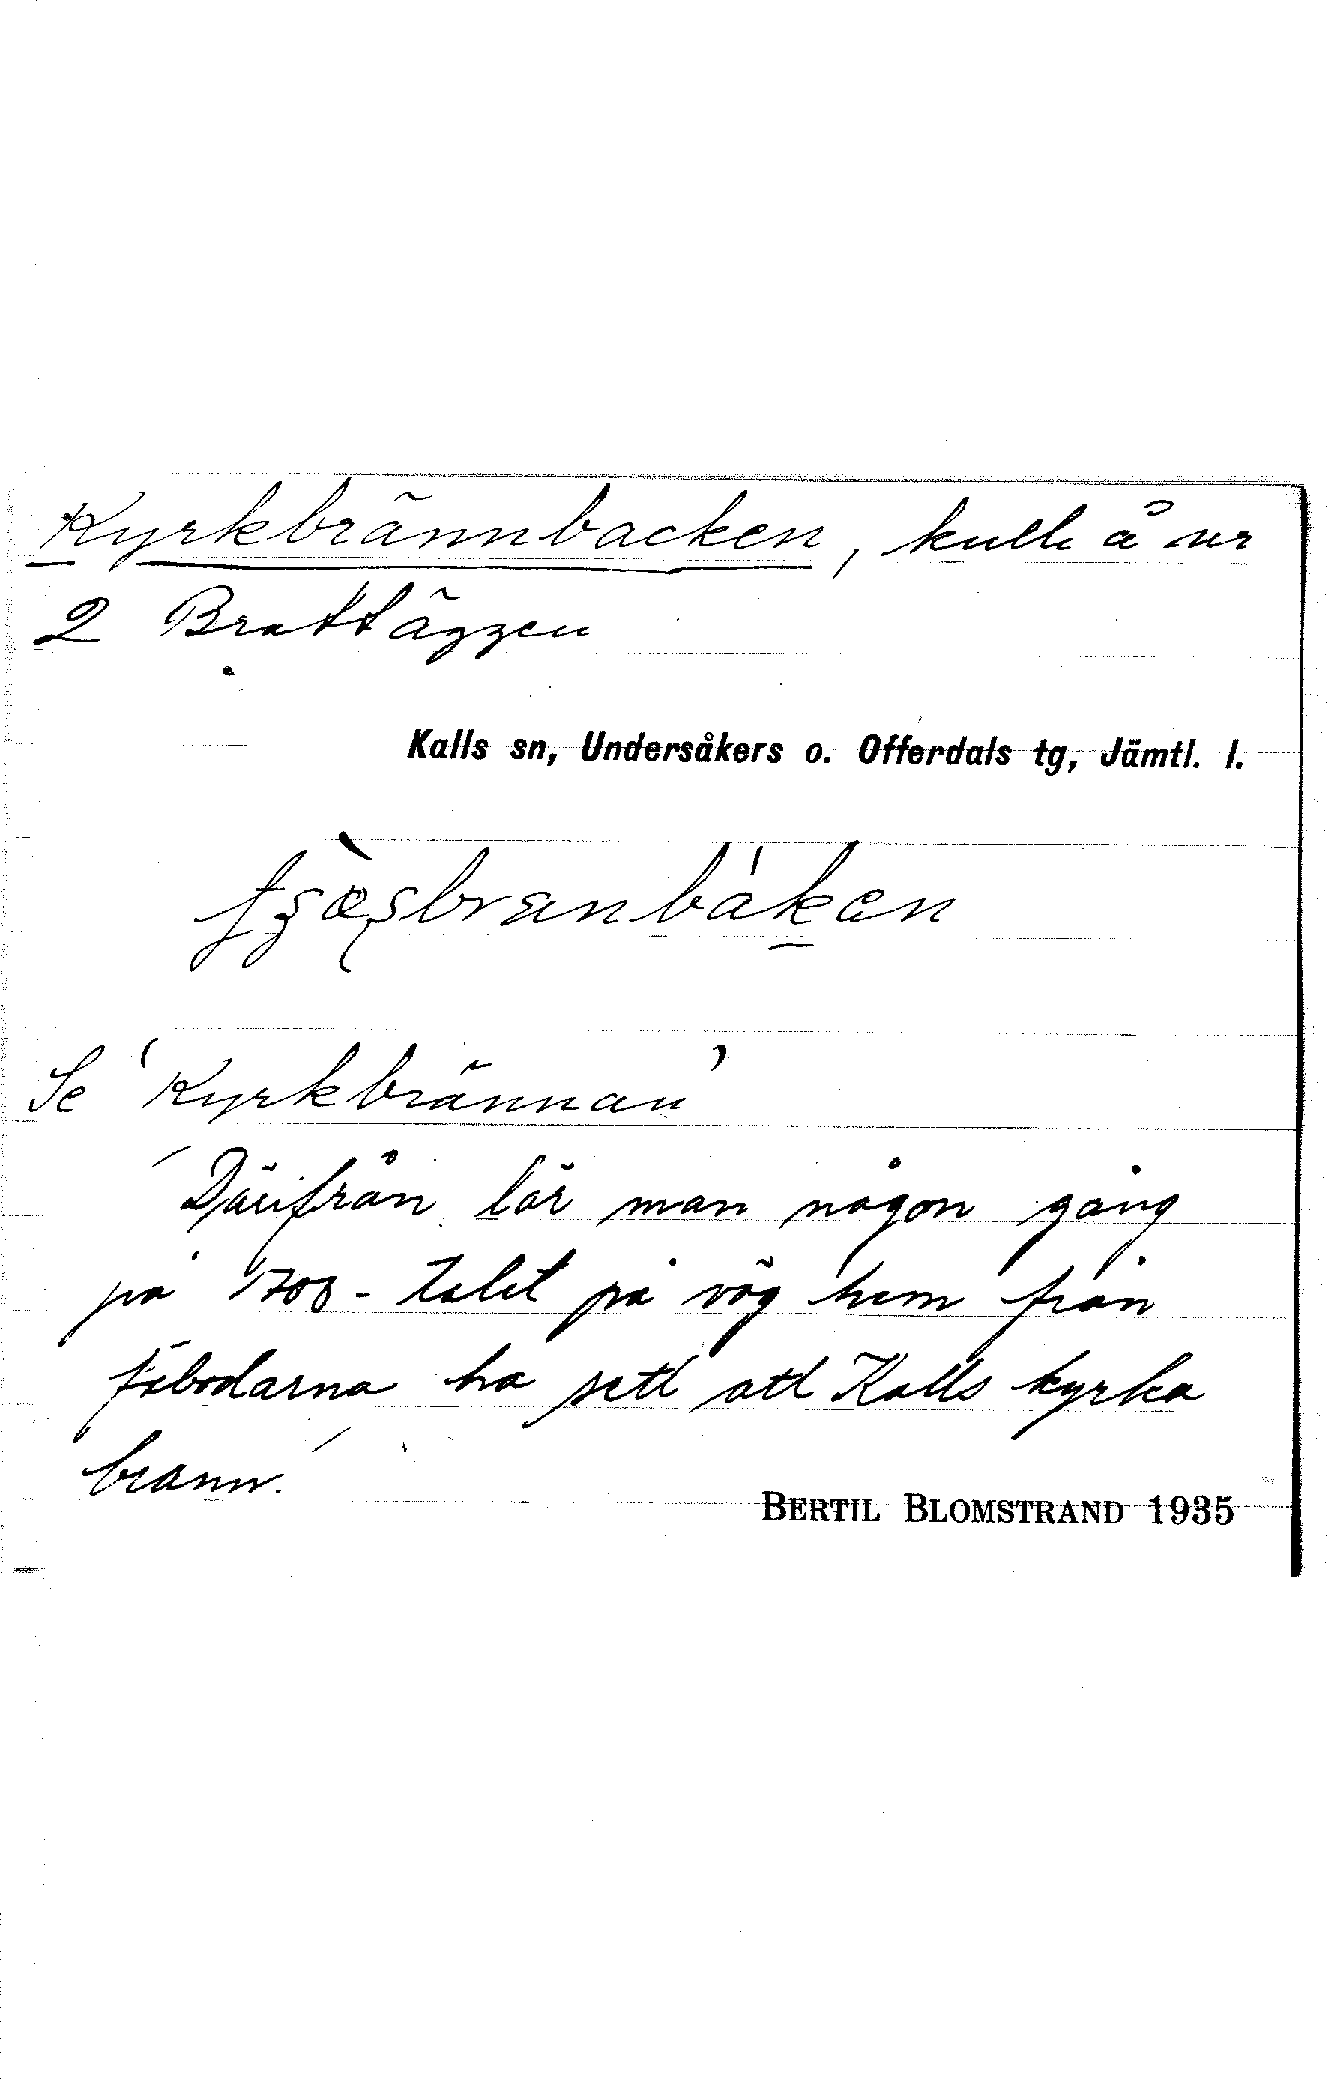 Kyrkbrännbacken, kulle å nr
2 Brattäggen
Kalls sn, Undersåkers o. Offerdals tg, Jämtl. l.
Se 'Kyrkbrännan'
'Därifrån lär man någon gång
på 1700-talet på väg hem från
fäbodarna ha sett att Kalls kyrka
brann.'
BERTIL BLOMSTRAND 1935